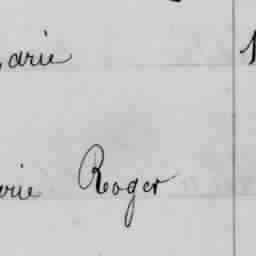 arie 1
rie Roger